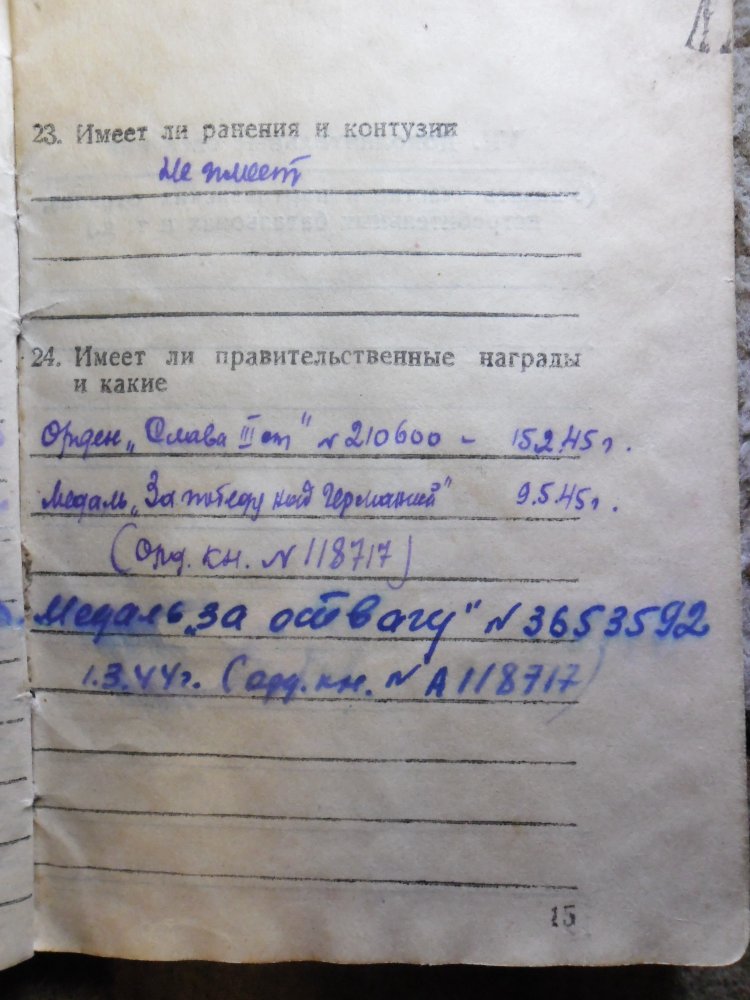 23. Имеет ли ранения и контузии
Не имеет
24. Имеет ли правительственные награды
и какие
Орден „Слава III ст" № 210600 – 15.2.45 г.
Медаль „За победу над Германией" 9.5.45 г.
(Орд. кн. № 118717)
Медаль „За отвагу" № 3653592
1.3.44 г. (орд. кн. № А 118717)
15